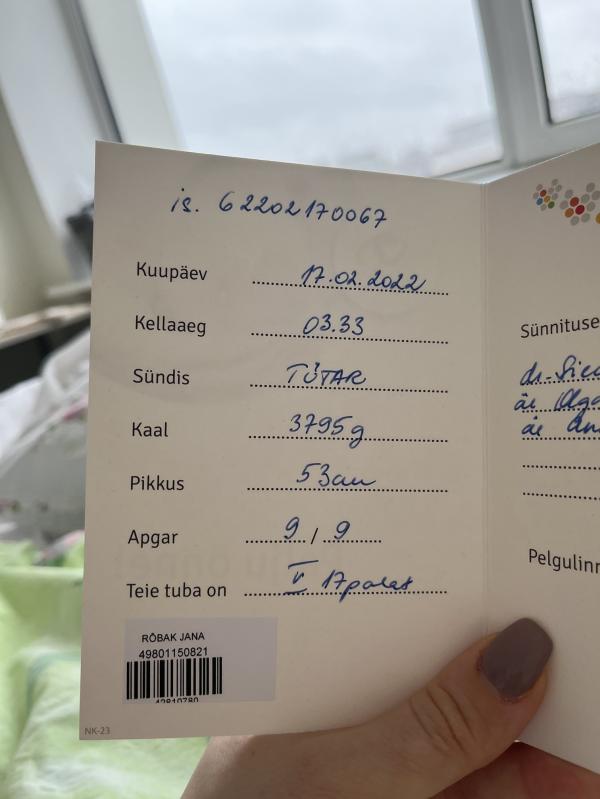 is. 62202170067
Kuupäev 17.02.2022
Kellaaeg 03.33
Sündis TÜTAR
Kaal 3795g
Pikkus 53cm
Apgar 9 / 9
Teie tuba on V 17palat
RÕBAK JANA
49801150821
42810780
NK-23
Sünnituse
dr. 
äe Olga
äe
Pelgulinn